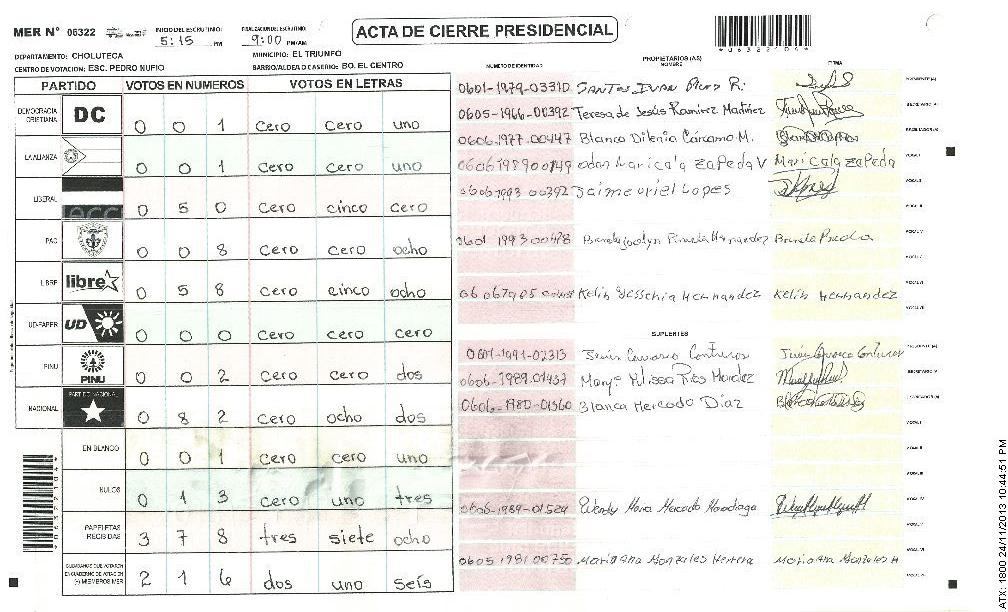 MER Nº 06322
INICIO DEL ESCRUTINIO: 5:15 PM
FINALIZACION DEL ESCRUTINIO: 9:00 PM/AM
ACTA DE CIERRE PRESIDENCIAL
*06322*04*
DEPARTAMENTO: CHOLUTECA
MUNICIPIO: EL TRIUNFO
CENTRO DE VOTACION: ESC. PEDRO NUFIO
BARRIO/ALDEA O CASERIO: BO. EL CENTRO
PARTIDO VOTOS EN NUMEROS VOTOS EN LETRAS
DEMOCRACIA CRISTIANA DC 0 0 1 cero cero uno
LA ALIANZA 0 0 1 cero cero uno
LIBERAL 0 5 0 cero cinco cero
PAC 0 0 8 cero cero ocho
LIBRE libre 0 5 8 cero cinco ocho
UD-FAPER UD 0 0 0 cero cero cero
PINU PINU 0 0 2 cero cero dos
NACIONAL PARTIDO NACIONAL 0 8 2 cero ocho dos
EN BLANCO 0 0 1 cero cero uno
NULOS 0 1 3 cero uno tres
PAPELETAS RECIBIDAS 3 7 8 tres siete ocho
CIUDADANOS QUE VOTARON EN CUADERNO DE VOTACION (+) MIEMBROS MER 2 1 6 dos uno seis
NUMERO DE IDENTIDAD PROPIETARIOS (AS) NOMBRE FIRMA
0601-1979-03310 Santos Ivan R. PRESIDENTE (A)
0605-1966-00392 Teresa de Jesús Ramirez Martinez SECRETARIO (A)
0606-1977-00447 Blanca Dilenia Cárcamo M. ESCRUTADOR (A)
0606198900149 odan Maricela zapeda V VOCAL I
0606 1993 00392 Jaime uriel Lopes VOCAL II
VOCAL III
0601 1993 00478 Hernandez VOCAL IV
VOCAL V
Kelin Hernandez Kelin Hernandez VOCAL VI
SUPLENTES
0601-1991-02313 PRESIDENTE (A)
0606-1989-01437 Melissa SECRETARIO (A)
0606-1980-01360 Blanca Mercado Diaz ESCRUTADOR (A)
VOCAL I
VOCAL II
VOCAL III
0606-1989-01524 Wendy Maria Mercado VOCAL IV
VOCAL V
0605 1981 00750 Mariana Gonzales Herrera Mariana Gonzales H VOCAL VI
ATX: 1800 24/11/2013 10:44:51 PM